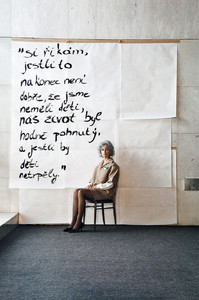 "Si říkám,
jestli to
nakonec není
dobře, že jsme
neměli děti,
náš život byl
hodně pohnutý,
a jestli by
děti
netrpěly."